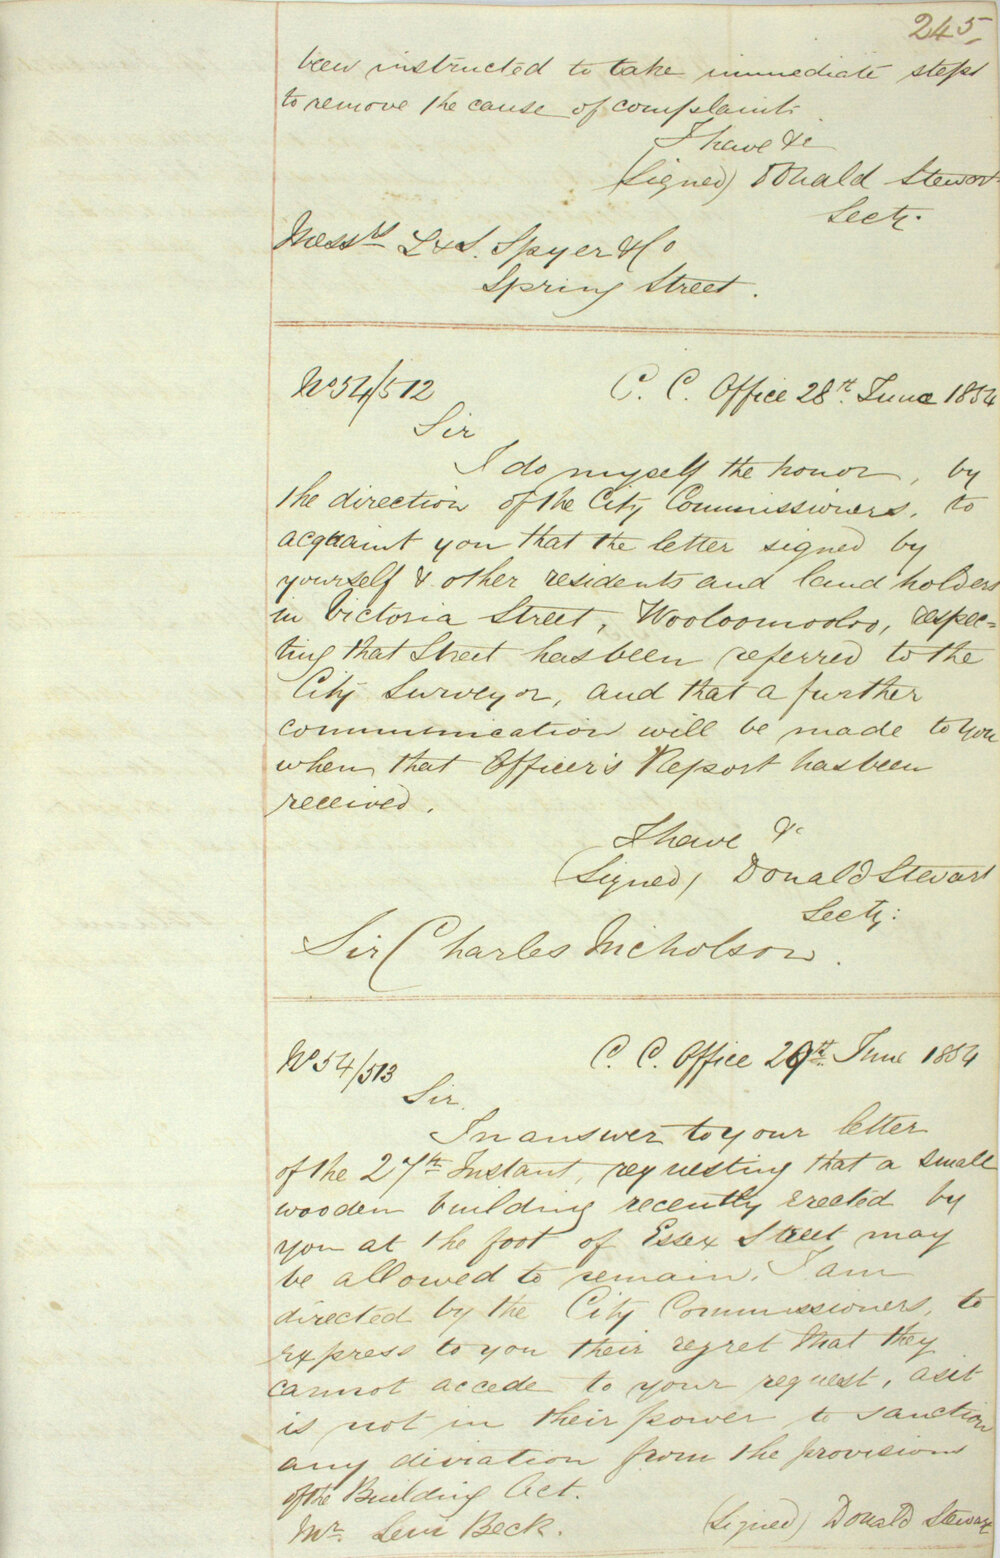 245
been instructed to take immediate steps
to remove the cause of complaint.
I have &c
(Signed) Donald Stewart
Secty.
Messrs L & S. Spyer & Co
Spring Street.
No 54/512
C. C. Office 28th. June 1854
Sir
I do myself the honor, by
the direction of the City Commissioners, to
acquaint you that the letter signed by
yourself & other residents and land holders
in Victoria Street, Wooloomooloo, respec=
ting that Street has been referred to the
City Surveyor, and that a further
communication will be made to you
when that Officer's Report has been
received.
I have &c
(Signed) Donald Stewart
Secty:
Sir Charles Nicholson.
No 54/513
C. C. Office 29th. June 1854
Sir
In answer to your letter
of the 27th Instant, requesting that a small
wooden building recently erected by
you at the foot of Essex Street may
be allowed to remain. I am
directed by the City Commissioners, to
express to you their regret that they
cannot accede to your request, as it
is not in their power to sanction
any diviation from the provisions
of the Building Act.
Mr. Levi Beck.
(Signed) Donald Stewart